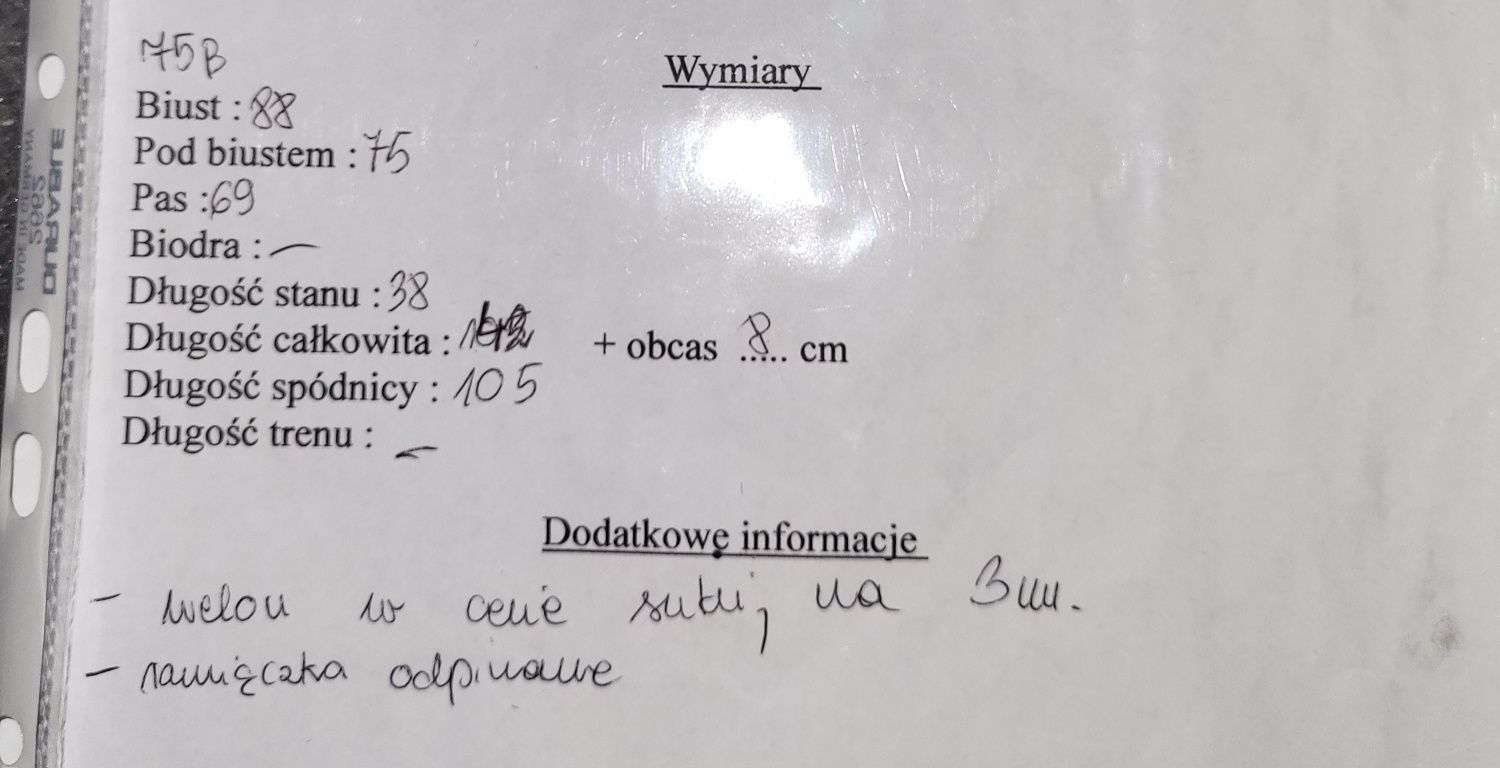 75B
Wymiary
Biust : 88
Pod biustem : 75
Pas : 69
Biodra : —
Długość stanu : 38
Długość całkowita : + obcas ..8... cm
Długość spódnicy : 105
Długość trenu : —
Dodatkowe informacje
- welon w cenie sukni, na 3m.
- ramiączka odpinane
DURABLE